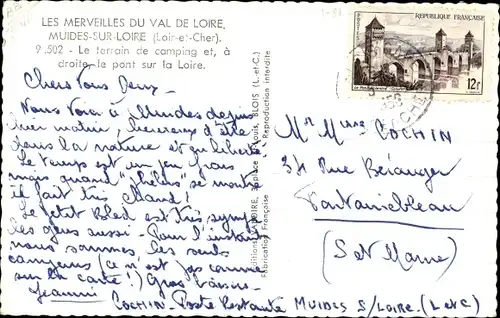 LES MERVEILLES DU VAL DE LOIRE,
MUIDES-SUR-LOIRE (Loir-et-Cher).
9.502 - Le terrain de camping et, à
droite, le pont sur la Loire.
Chers tous Deux -
Nous voici à Muides depuis
hier matin, heureux d'être
dans la nature et en liberté.
Le temps est un peu frais
mais quand "hélios" se montre
il fait très chaud !
Le petit bled est très sympa
les gens aussi. Pour l'instant
nous sommes les seuls
campeurs (ce n'est pas comme
sur la carte !) Gros baisers
Jeannine
COCHIN - Poste Restante MUIDES S/LOIRE. (L et C)
BLOIS (L.-et-C.)
Fabrication Française - Reproduction interdite
RÉPUBLIQUE FRANÇAISE
12f
Mr Mme COCHIN
34 Rue Béranger
Fontainebleau
(S et Marne)